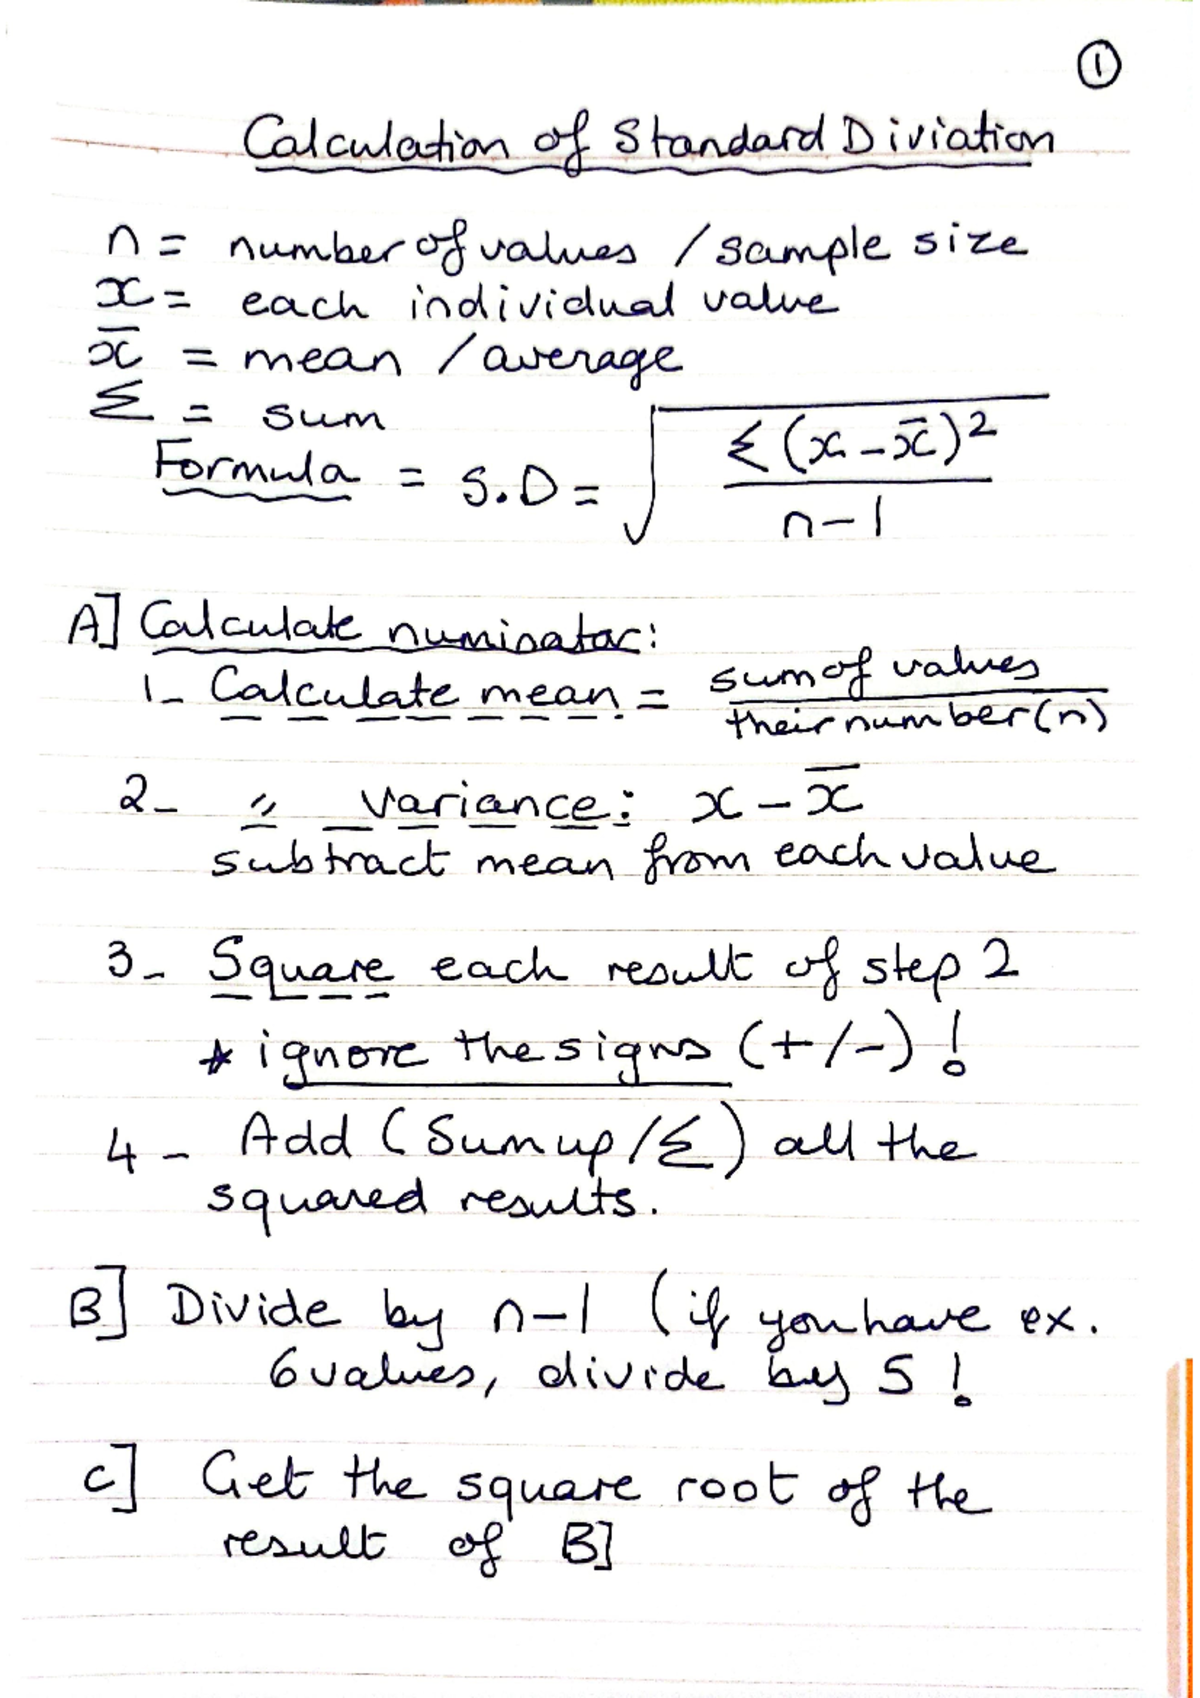 ①
Calculation of Standard Diviation
n = number of values / sample size
x = each individual value
x̄ = mean / average
Σ = sum
Formula = S.D = √ Σ(x - x̄)² / n-1
A] Calculate numinator:
1- Calculate mean = sum of values / their number (n)
2- 〃 variance: x - x̄
subtract mean from each value
3- Square each result of step 2
* ignore the signs (+/-) !
4- Add (Sum up/Σ) all the
squared results.
B] Divide by n-1 (if you have ex.
6 values, divide by 5 !
C] Get the square root of the
result of B]